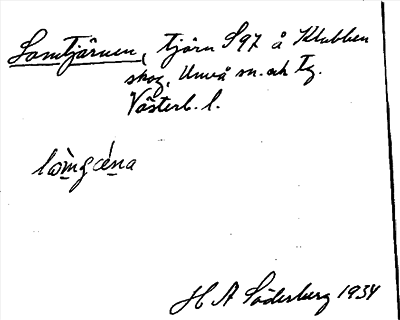 Lomtjärnen, tjärn S97 å Klubben
skog, Umeå sn. och tg.
Västerb. l.
H A Söderberg 1934